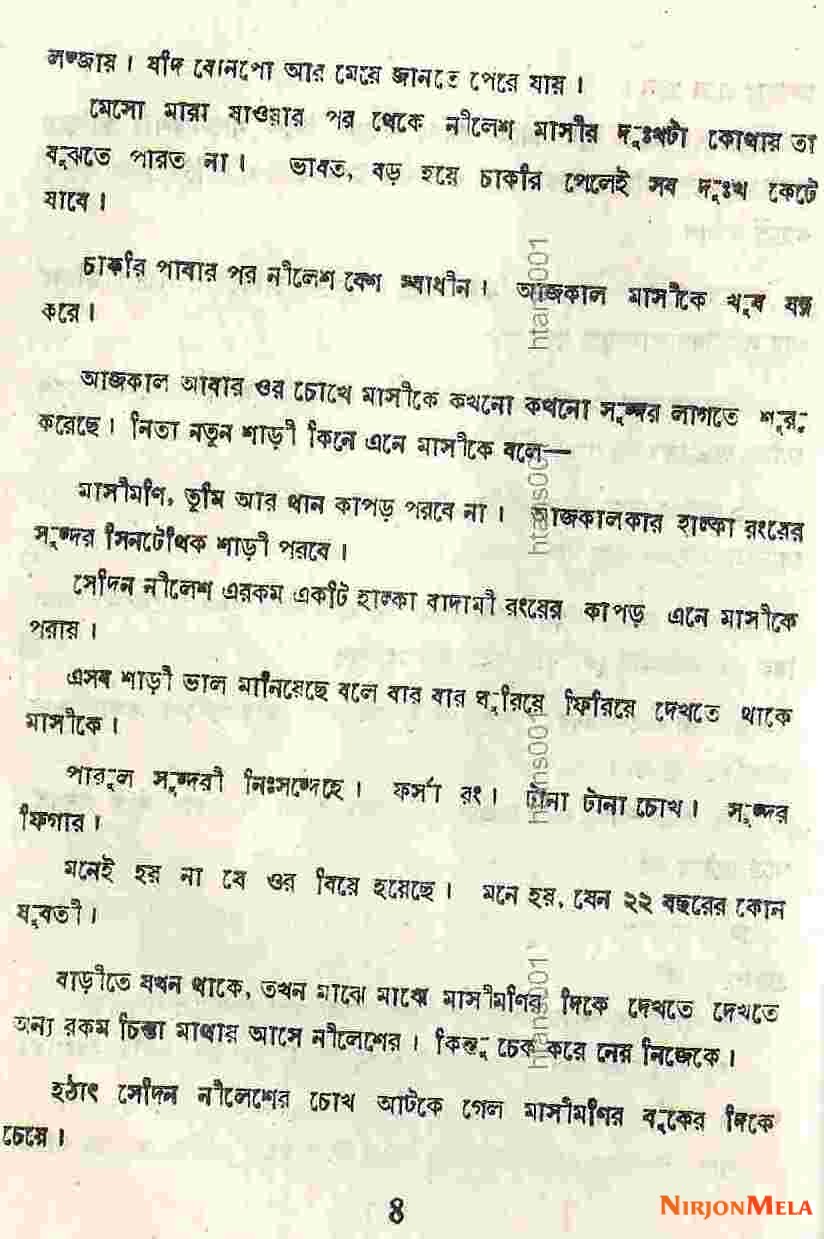 লজ্জায়। যদি বোনপো আর মেয়ে জানতে পেরে যায়।
মেসো মারা যাওয়ার পর থেকে নীলেশ মাসীর দুঃখটা কোথায় তা
বুঝতে পারত না। ভাবত, বড় হয়ে চাকরি পেলেই সব দুঃখ কেটে
যাবে।
চাকরি পাবার পর নীলেশ বেশ স্বাধীন। আজকাল মাসীকে খুব যত্ন
করে।
আজকাল আবার ওর চোখে মাসীকে কখনো কখনো সুন্দর লাগতে শুরু
করেছে। নিত্য নতুন শাড়ী কিনে এনে মাসীকে বলে—
মাসীমণি, তুমি আর থান কাপড় পরবে না। আজকালকার হাল্কা রংয়ের
সুন্দর সিনটেথিক শাড়ী পরবে।
সেদিন নীলেশ এরকম একটি হাল্কা বাদামী রংয়ের কাপড় এনে মাসীকে
পরায়।
এসব শাড়ী ভাল মানিয়েছে বলে বার বার ঘুরিয়ে ফিরিয়ে দেখতে থাকে
মাসীকে।
পারুল সুন্দরী নিঃসন্দেহে। ফর্সা রং। টানা টানা চোখ। সুন্দর
ফিগার।
মনেই হয় না যে ওর বিয়ে হয়েছে। মনে হয়, যেন ২২ বছরের কোন
যুবতী।
বাড়ীতে যখন থাকে, তখন মাঝে মাঝে মাসীমণির দিকে দেখতে দেখতে
অন্য রকম চিন্তা মাথায় আসে নীলেশের। কিন্তু চেক করে নেয় নিজেকে।
হঠাৎ সেদিন নীলেশের চোখ আটকে গেল মাসীমণির বুকের দিকে
চেয়ে।
8
NIRJONMELA
htans001
htans001
htans001
htans001